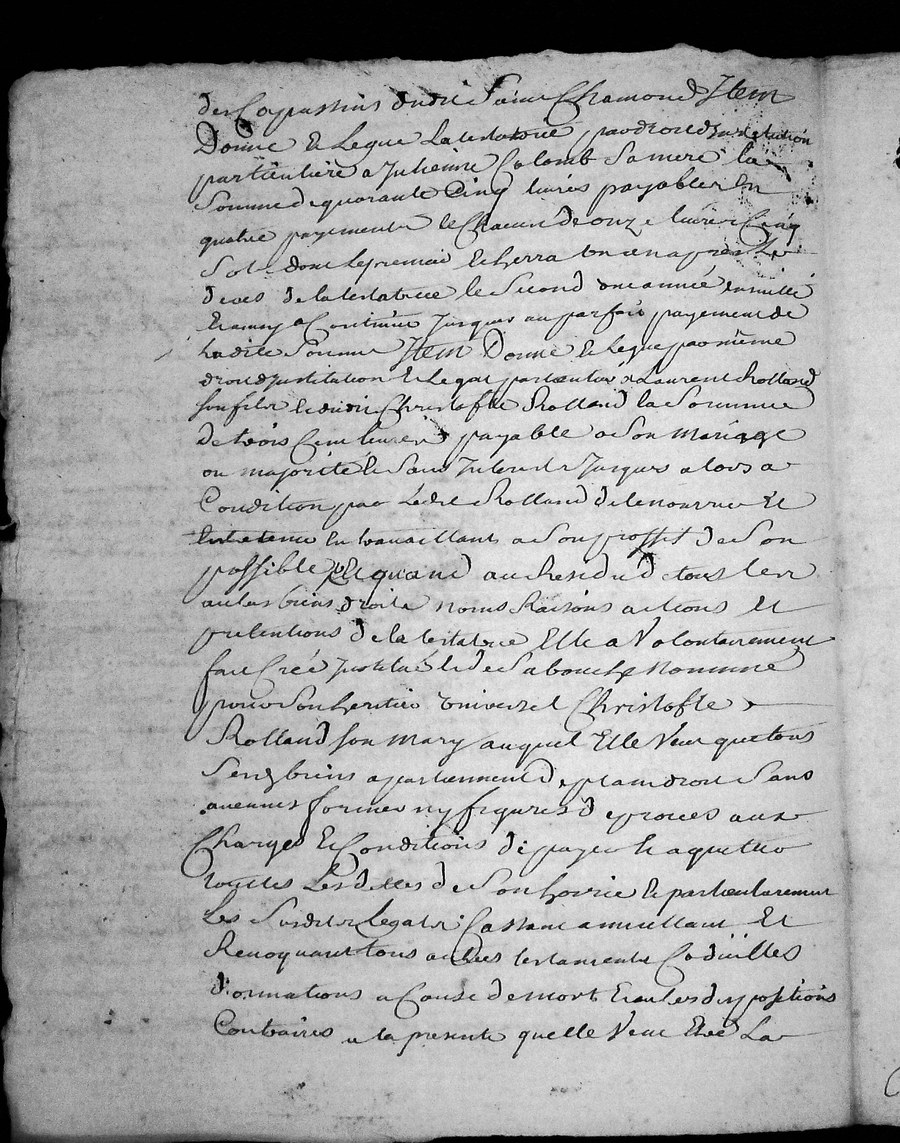 des Capussins dudit Saint Chamond Item
Donne & Legue La testatrice, par droit d'Institution
particuliere a Julienne Colomb Sa mere la
Somme de quarante Cinq livres payables En
quatre payements le Chacun de onze livres Cinq
Sols dont le premier Echerra un an apres Le
deces de la testatrice le Second une année ensuitte
Et ainsy a Continuer Jusques au parfait payement de
La dite Somme Item Donne & Legue par même
droit d'Institution & Legat particulier a Laurent Rolland
son fils & dudit Christofle Rolland la Somme
de trois Cent livres payable a Son Mariage
ou majorité & Sans Interest Jusques alors a
Condition par Ledit Rolland de le nourrir Et
Entretenir En travaillant a Son proffit de Son
possible Et quand au Residu de tous Les
autres biens droits noms Raisons actions Et
pretentions de la testatrice Elle a Volontairement
fait Créé Institué & de Sa bouche Nommé
pour Son heritier universel Christofle
Rolland son Mary auquel Elle Veut que tous
Sesd 
biens apartiennent de plain droit Sans
aucunes formes ny figures de proces aux
Charges & Conditions de payer & aquitter
touttes Les dettes de Son hoirie & particulierement
Les Susdits Legats Cassant annullant Et
Revoquant tous autres testaments Codicilles
Donnations a Cause de mort Et autres dispositions
Contraires a la presente quelle Veut Etre La